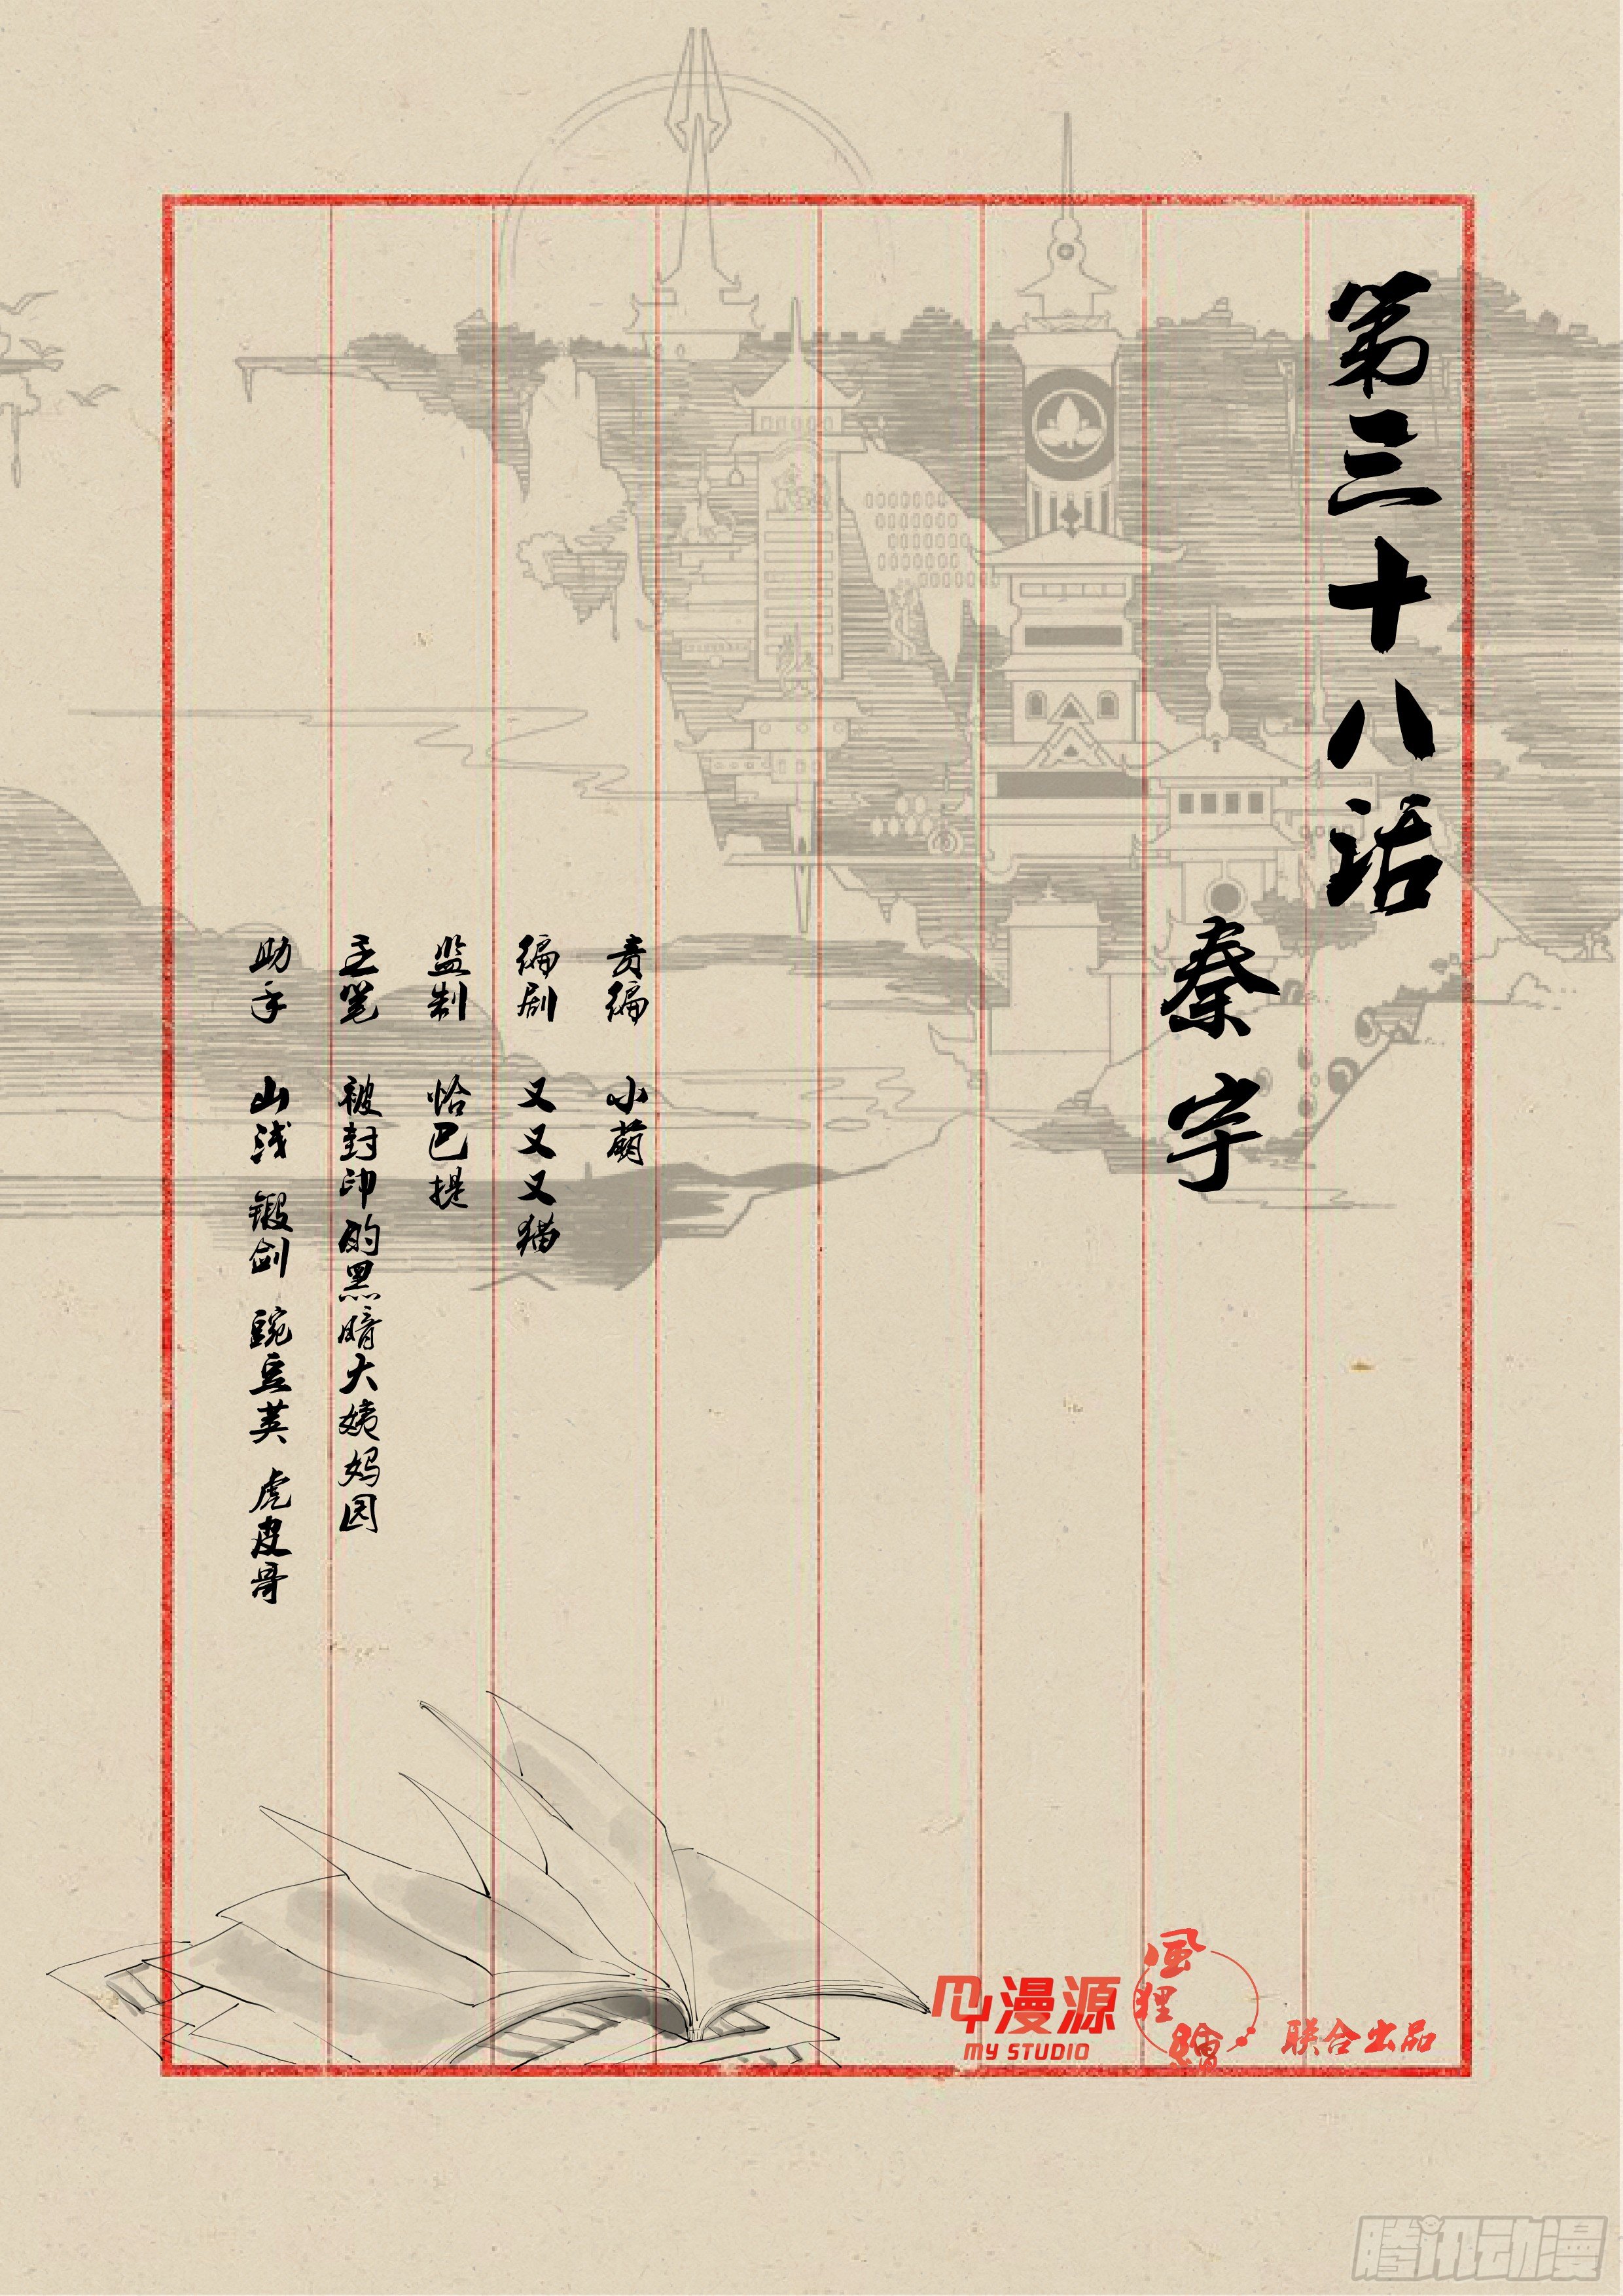 第三十八话
秦宇
责编 小萌
编剧 又又又猫
监制 恰巴提
主笔 被封印的黑暗大姨妈园
助手 山浅 锻剑 豌豆荚 虎皮哥
漫源
MY STUDIO
風狸繪
联合出品
腾讯动漫